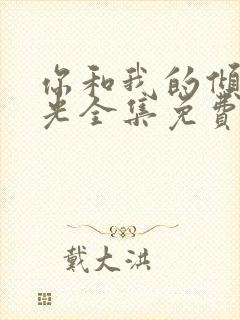 你和我的倾
光全集免费
戴大洪